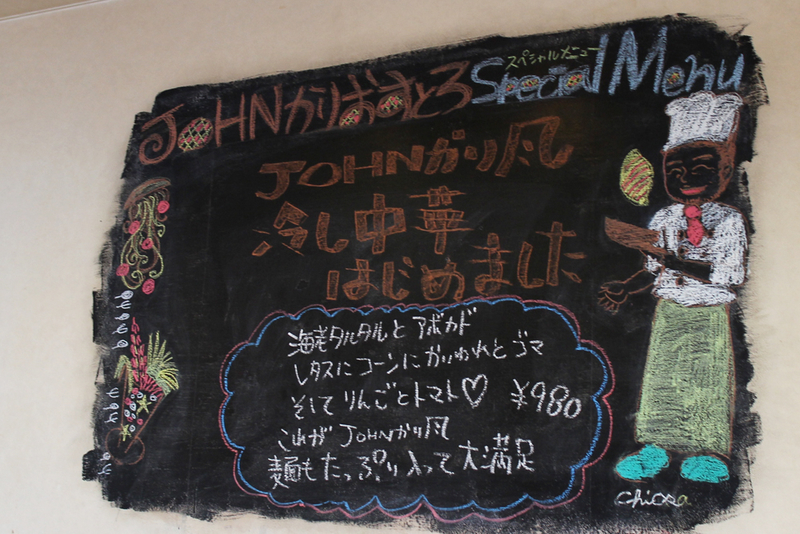 JOHNかりおすとろ
スペシャルメニュー
Special Menu
JOHNがり風
冷し中華
はじめました
海老タルタルと アボカド
レタスにコーンにかいわれと ゴマ
そして りんごとトマト♡ ¥980
これが JOHNがり風
麺も たっぷり入って 大満足